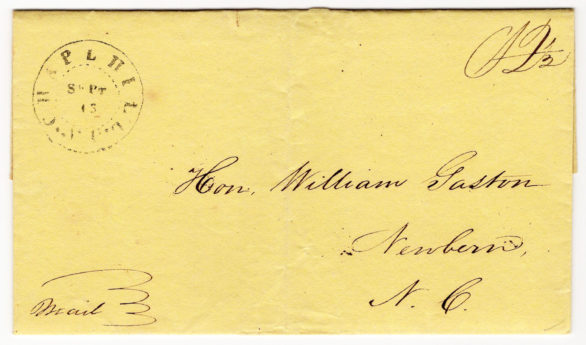 CHAPL HILL
SEPT
15
12½
Hon, William Gaston
Newbern,
N. C.
Mail